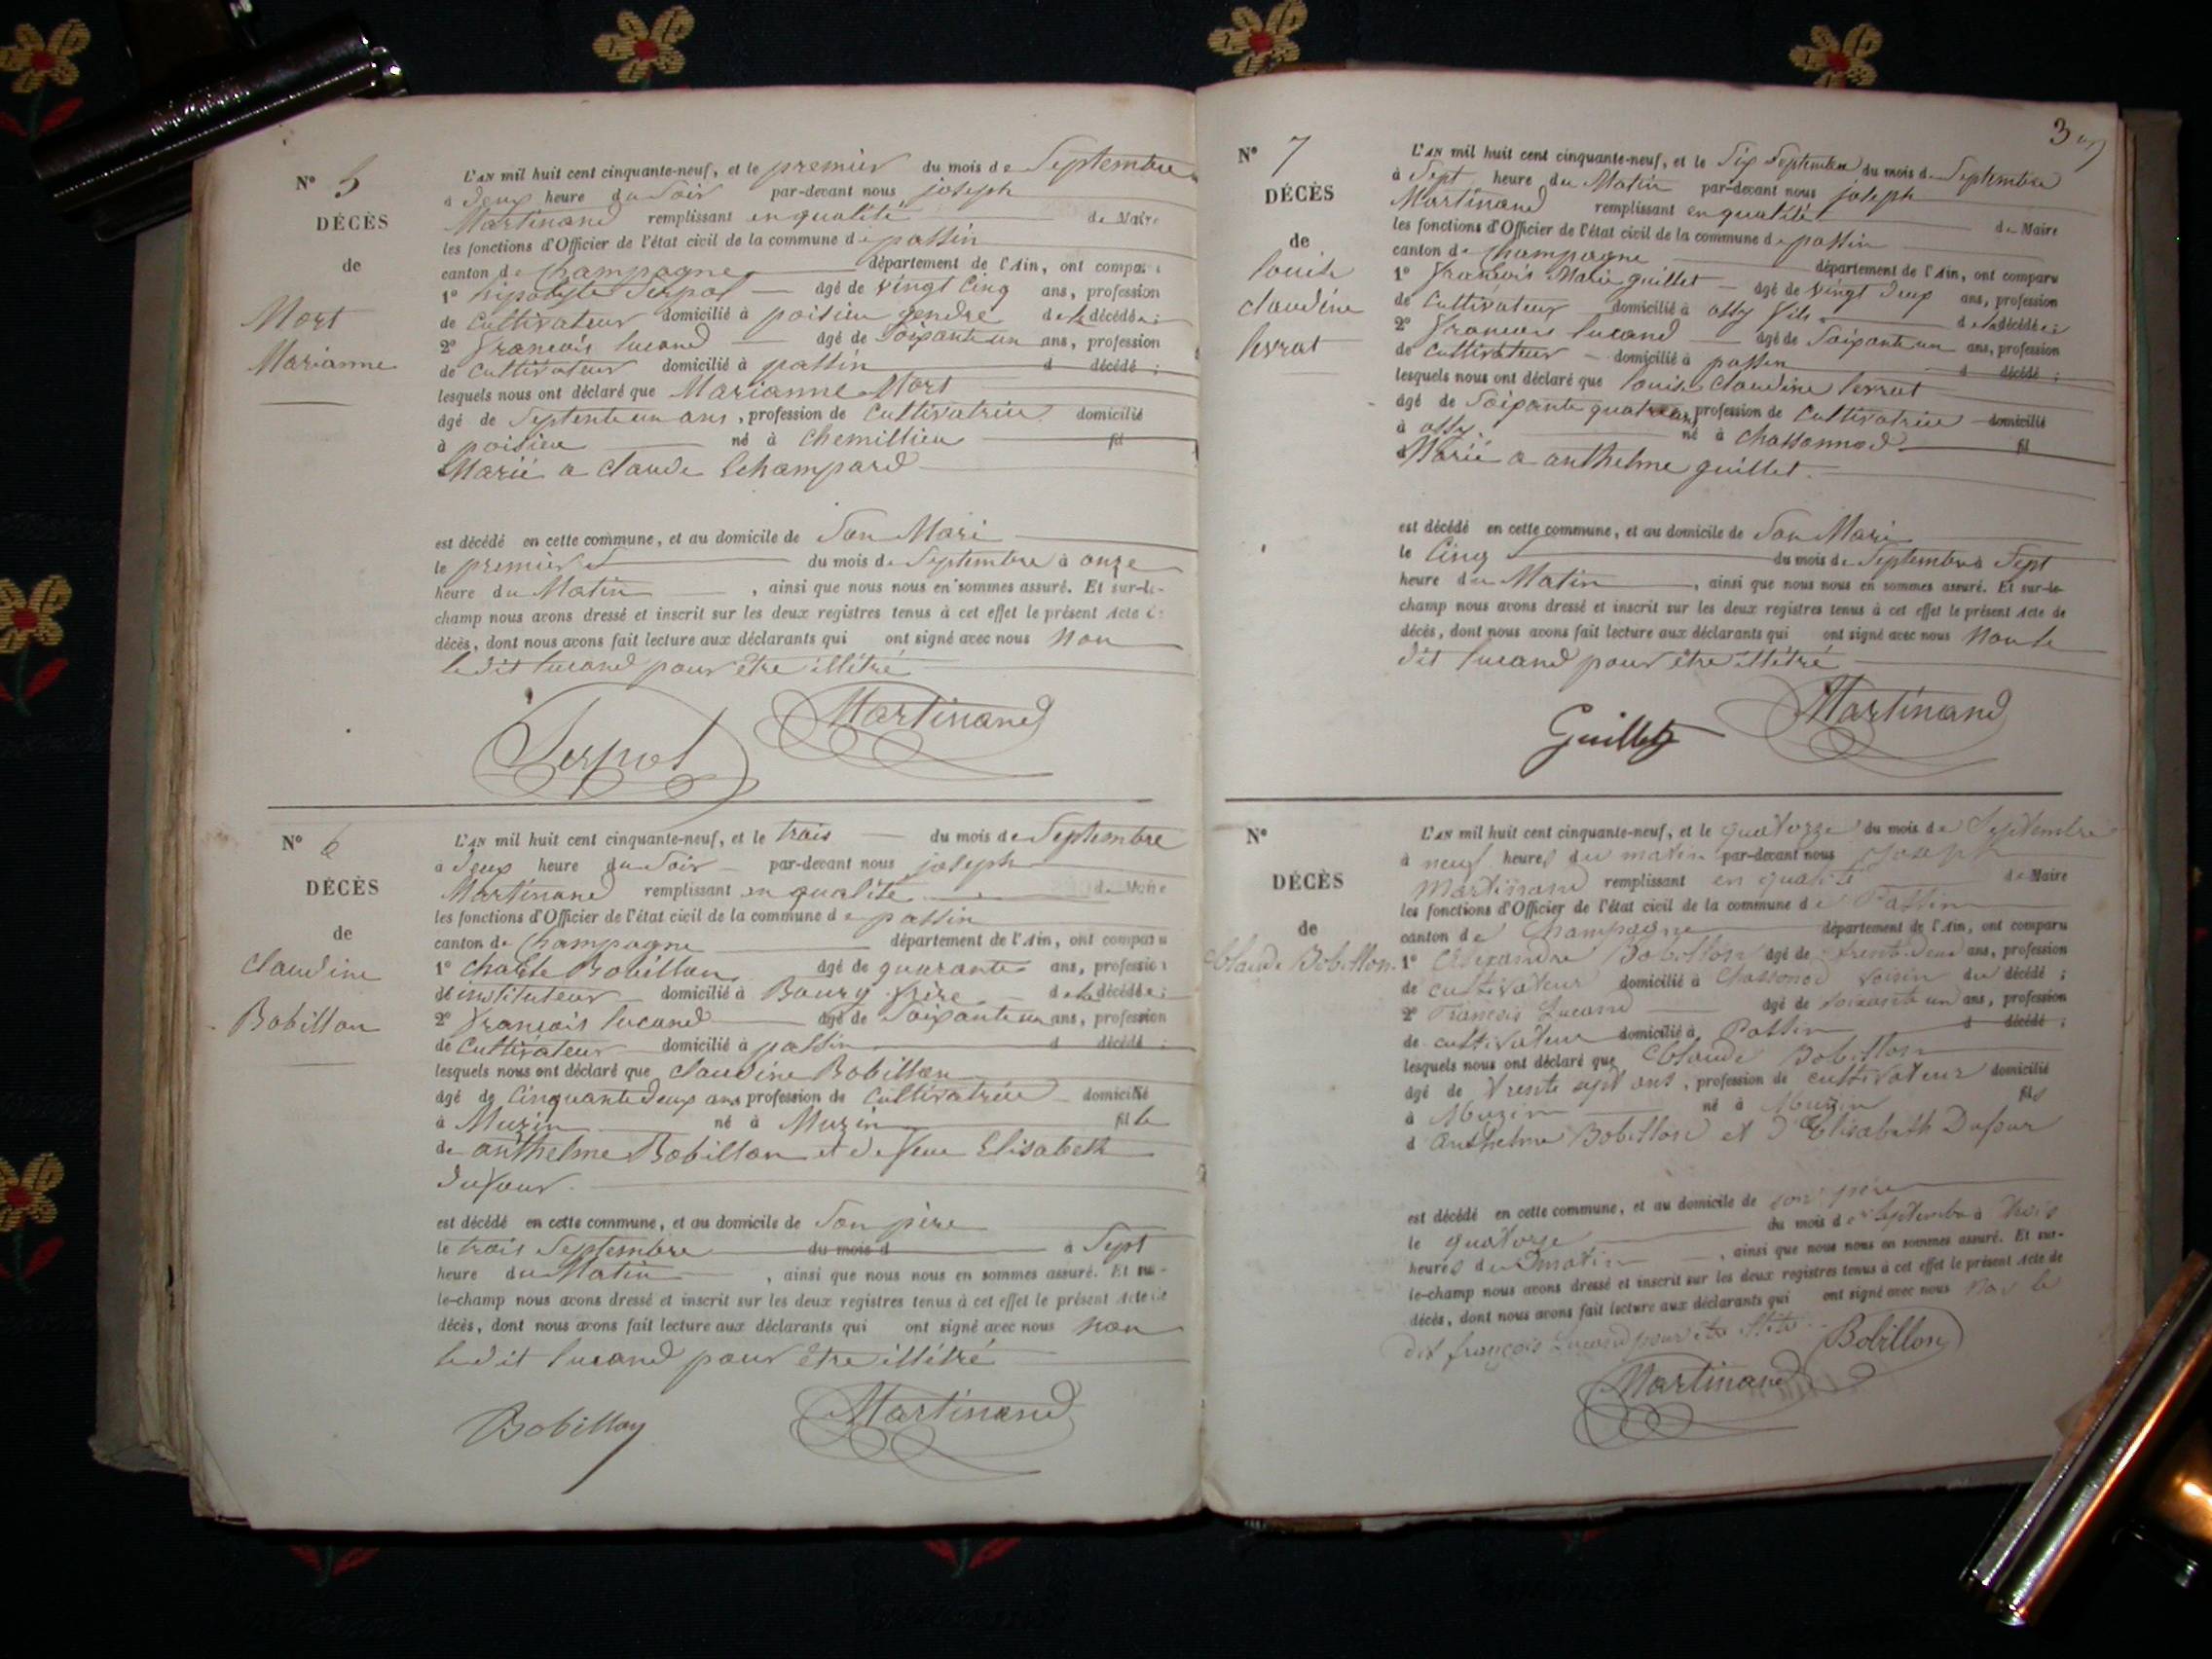 N° 5
DÉCÈS
de
Mort
Marianne
L'AN mil huit cent cinquante-neuf, et le premier du mois de Septembre
à deux heure du Soir par-devant nous joseph
Martinand remplissant en qualité de Maire
les fonctions d'Officier de l'état civil de la commune de passin
canton de Champagne département de l'Ain, ont comparu
1° hipolyte Serpol âgé de vingt cinq ans, profession
de Cultivateur domicilié à poisieu gendre de la décédée;
2° francois lucand âgé de Soixante un ans, profession
de Cultivateur domicilié à passin d décédé;
lesquels nous ont déclaré que Marianne Mort
âgé de Septente un ans, profession de Cultivatrice domicilié
à poisieu né à Chemillieu fil
Marié a claude Echampard
est décédé en cette commune, et au domicile de Son Mari
le premier du mois de Septembre à onze
heure du Matin, ainsi que nous nous en sommes assuré. Et sur-le-
champ nous avons dressé et inscrit sur les deux registres tenus à cet effet le présent Acte de
décès, dont nous avons fait lecture aux déclarants qui ont signé avec nous Non
le dit lucand pour être illétré
Serpol Martinand
N° 6
DÉCÈS
de
Claudine
Bobillon
L'AN mil huit cent cinquante-neuf, et le trois du mois de Septembre
à deux heure du Soir par-devant nous joseph
Martinand remplissant en qualité de Maire
les fonctions d'Officier de l'état civil de la commune de passin
canton de Champagne département de l'Ain, ont comparu
1° Bobillon âgé de quarante ans, profession
de instituteur domicilié à Bourg frère de la décédée;
2° francois lucand âgé de Soixante un ans, profession
de Cultivateur domicilié à passin d décédé;
lesquels nous ont déclaré que Claudine Bobillon
âgé de Cinquante deux ans profession de Cultivatrice domicilié
à Muzin né à Muzin fille
de anthelme Bobillon et de feue Elisabeth
dufour.
est décédé en cette commune, et au domicile de Son père
le trois Septembre du mois d à Sept
heure du Matin, ainsi que nous nous en sommes assuré. Et sur-
le-champ nous avons dressé et inscrit sur les deux registres tenus à cet effet le présent Acte de
décès, dont nous avons fait lecture aux déclarants qui ont signé avec nous non
le dit lucand pour être illétré
Bobillon Martinand
N° 7
DÉCÈS
de
louise
claudine
L'AN mil huit cent cinquante-neuf, et le Six Septembre du mois de Septembre
à Sept heure du Matin par-devant nous joseph
Martinand remplissant en qualité de Maire
les fonctions d'Officier de l'état civil de la commune de passin
canton de Champagne département de l'Ain, ont comparu
1° francois Marie guillet âgé de vingt deux ans, profession
de Cultivateur domicilié à ossy fils de la décédée;
2° francois lucand âgé de Soixante un ans, profession
de Cultivateur domicilié à passin d décédé;
lesquels nous ont déclaré que louise claudine
âgé de Soixante quatre ans, profession de Cultivatrice domicilié
à ossy né à Chassonnod fil
Marié a anthelme guillet.
est décédé en cette commune, et au domicile de Son Mari
le Cinq du mois de Septembre à Sept
heure du Matin, ainsi que nous nous en sommes assuré. Et sur-le-
champ nous avons dressé et inscrit sur les deux registres tenus à cet effet le présent Acte de
décès, dont nous avons fait lecture aux déclarants qui ont signé avec nous Non le
dit lucand pour être illétré
Guillet Martinand
N°
DÉCÈS
de
Claude Bobillon.
L'AN mil huit cent cinquante-neuf, et le quatorze du mois de Septembre
à neuf heures du matin par-devant nous Joseph
Martinand remplissant en qualité de Maire
les fonctions d'Officier de l'état civil de la commune de Passin
canton de Champagne département de l'Ain, ont comparu
1° Alexandre Bobillon âgé de trente deux ans, profession
de cultivateur domicilié à Chassonod voisin du décédé;
2° Francois Lucand âgé de soixante un ans, profession
de cultivateur domicilié à Passin d décédé;
lesquels nous ont déclaré que Claude Bobillon
âgé de trente sept ans, profession de cultivateur domicilié
à Muzin né à Muzin fils
d'Anthelme Bobillon et d'Elisabeth Dufour
est décédé en cette commune, et au domicile de son père
le quatorze du mois de Septembre à trois
heures du matin, ainsi que nous nous en sommes assuré. Et sur-
le-champ nous avons dressé et inscrit sur les deux registres tenus à cet effet le présent Acte de
décès, dont nous avons fait lecture aux déclarants qui ont signé avec nous non le
dit françois Lucand pour être
Bobillon
Martinand